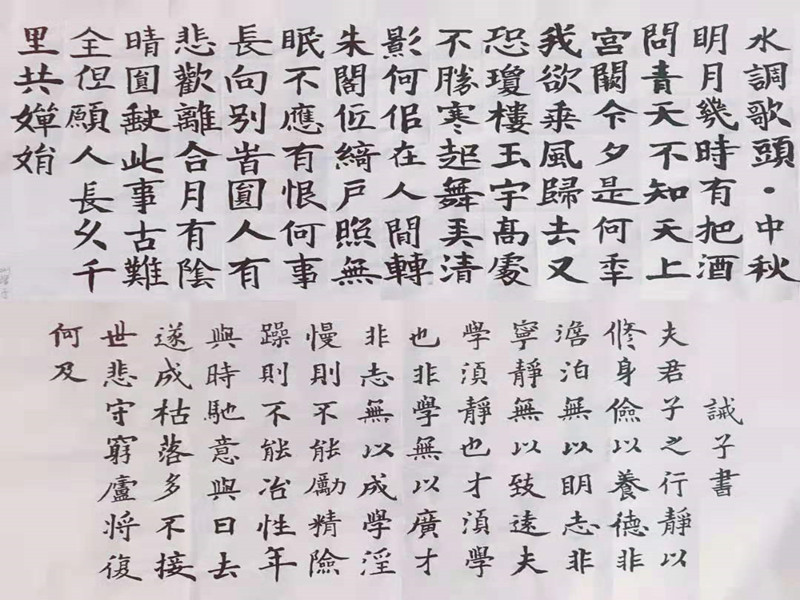 水調歌頭·中秋
明月幾時有把酒
問青天不知天上
宮闕今夕是何秊
我欲乘風歸去又
恐瓊樓玉宇高處
不勝寒起舞弄清
影何佀在人間轉
朱閣低綺戶照無
眠不應有恨何事
長向別時圓人有
悲歡離合月有陰
晴圓缺此事古難
全但願人長久千
里共嬋娟
誡子書
夫君子之行靜以
修身儉以養德非
澹泊無以明志非
寧靜無以致遠夫
學須靜也才須學
也非學無以廣才
非志無以成學淫
慢則不能勵精險
躁則不能冶性年
與時馳意與日去
遂成枯落多不接
世悲守窮廬將復
何及